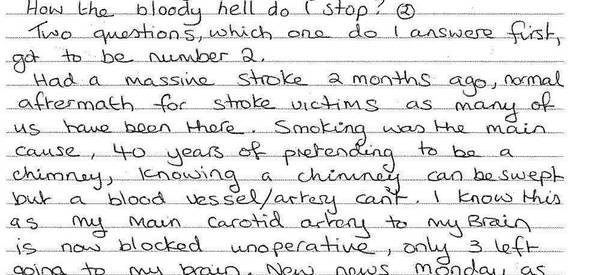 How the bloody hell do I stop? ②
Two questions, which one do I answere first,
got to be number 2.
Had a massive stroke 2 months ago, normal
aftermath for stroke victims as many of
us have been there. Smoking was the main
cause, 40 years of pretending to be a
chimney, knowing a chimney can be swept
but a blood vessel/artery can't. I know this
as my main carotid artery to my Brain
is now blocked unoperative, only 3 left
going to my brain. New news monday, as